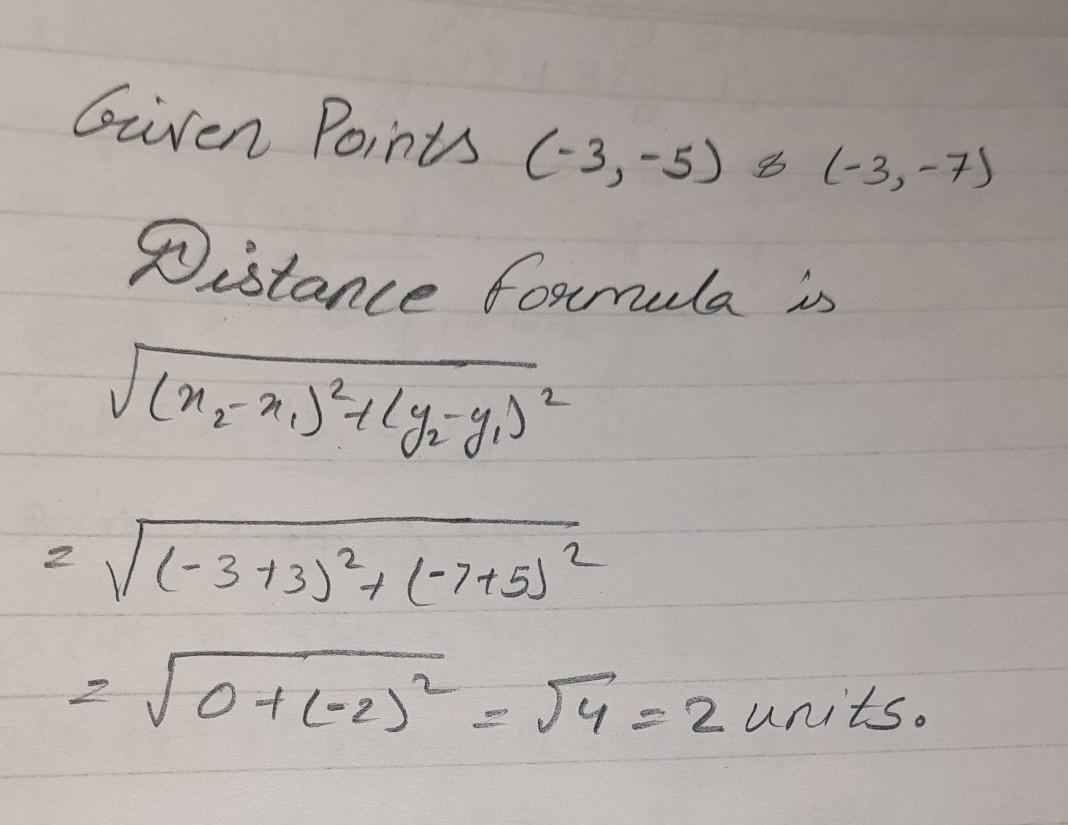 Given Points (-3, -5) & (-3, -7)
Distance formula is
√(x₂-x₁)²+(y₂-y₁)²
= √(-3+3)²+(-7+5)²
= √0+(-2)² = √4 = 2 units.